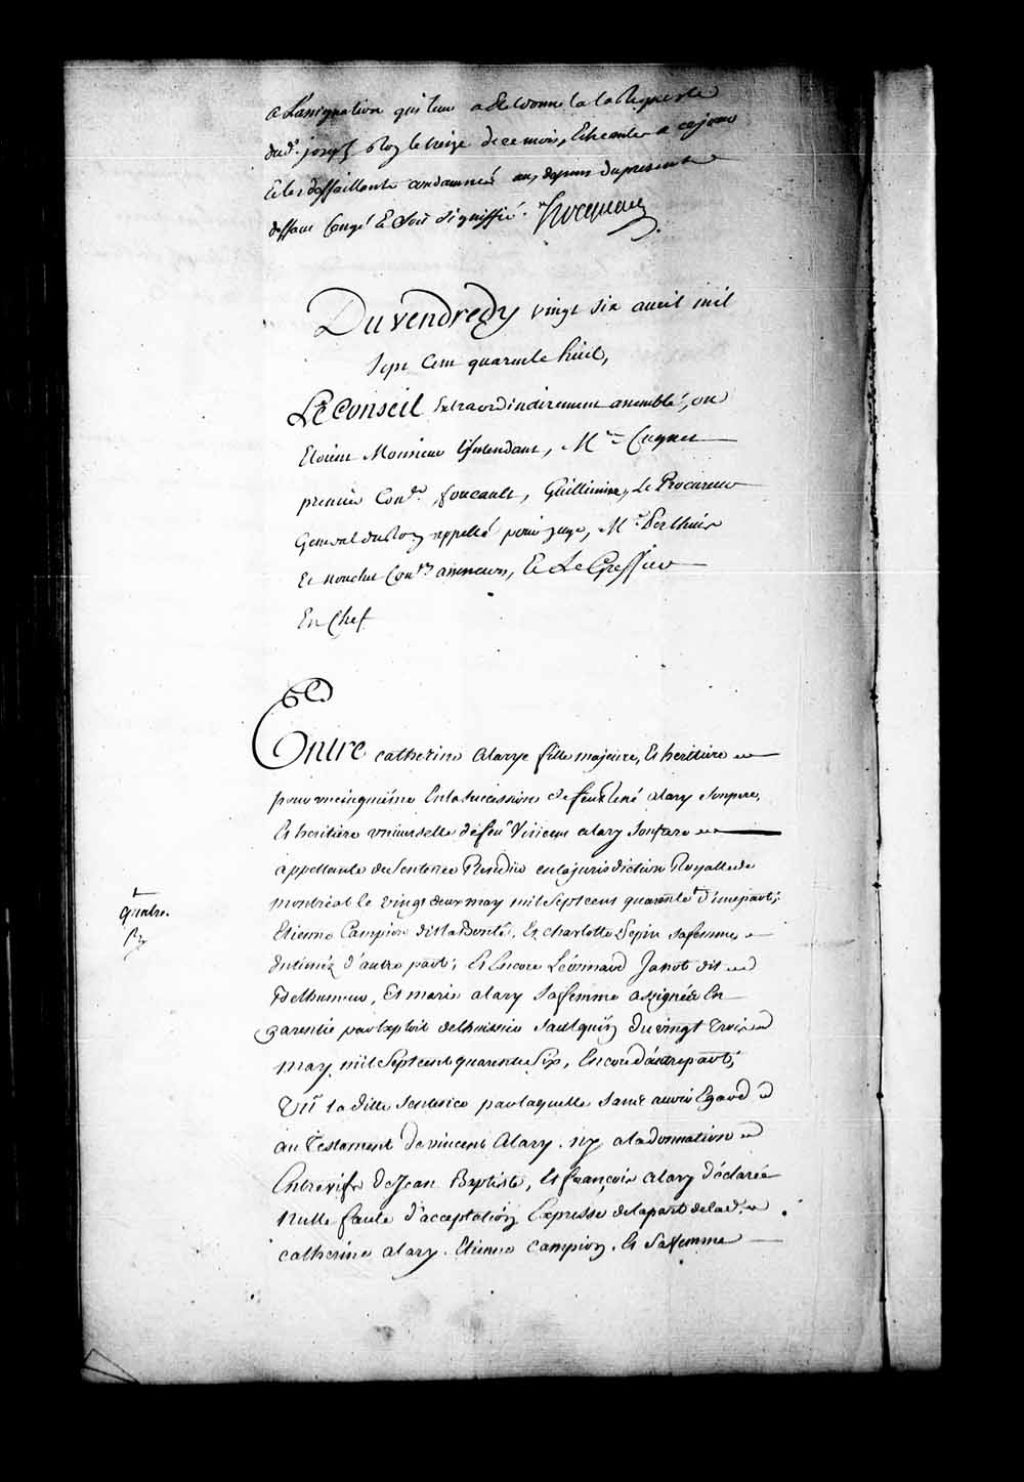 a L'assignation qui leur a Eté donnée a la Requeste
dud. joseph Roy le treize de ce mois, Echeante a ce jour
Et les deffaillants condamnés aux depens du present
deffaut Congé Et Soit signiffié. Hocquart
Du vendredy vingt six avril mil
Sept Cent quarante huit,
Le Conseil Extraordinairement assemblé, ou
Etoient Monsieur l'Intendant, Mrs Cugnet
premier Coner, foucault, Guillimin, Le Procureur
General du Roy appellé pour juge, Mrs Perthuis
Et nouchet Coners assesseurs, Et Le Greffier
En Chef
Entre catherine alarye fille majeure, Et heritiere
pour un cinquiéme En la succession de feu René alary son pere,
Et heritiere universelle de feu Vincent alary son frere
appellante de Sentence Rendue en la jurisdiction Royalle de
montréal le vingt deux may mil Sept cent quarante d'une part;
quatre.
Etienne Campion dit la Bonté, Et charlotte Pepin sa femme
Intimés d'autre part; Et Encore Léonnard Janot dit
Belhumeur, Et marie alary Sa femme assignée En
garentie par Exploit de l'huissier Saulquin du vingt trois
may mil Sept cent quarante Six, Encore d'autre part;
Vû la ditte Sentence par laquelle Sans avoir Egard
au Testament de vincent Alary. ny a la donnation
Entre vifs de Jean Baptiste, Et françois alary déclarée
Nulle faute d'acceptation Expresse de la part de lad.
catherine alary. Etienne campion, Et Sa femme